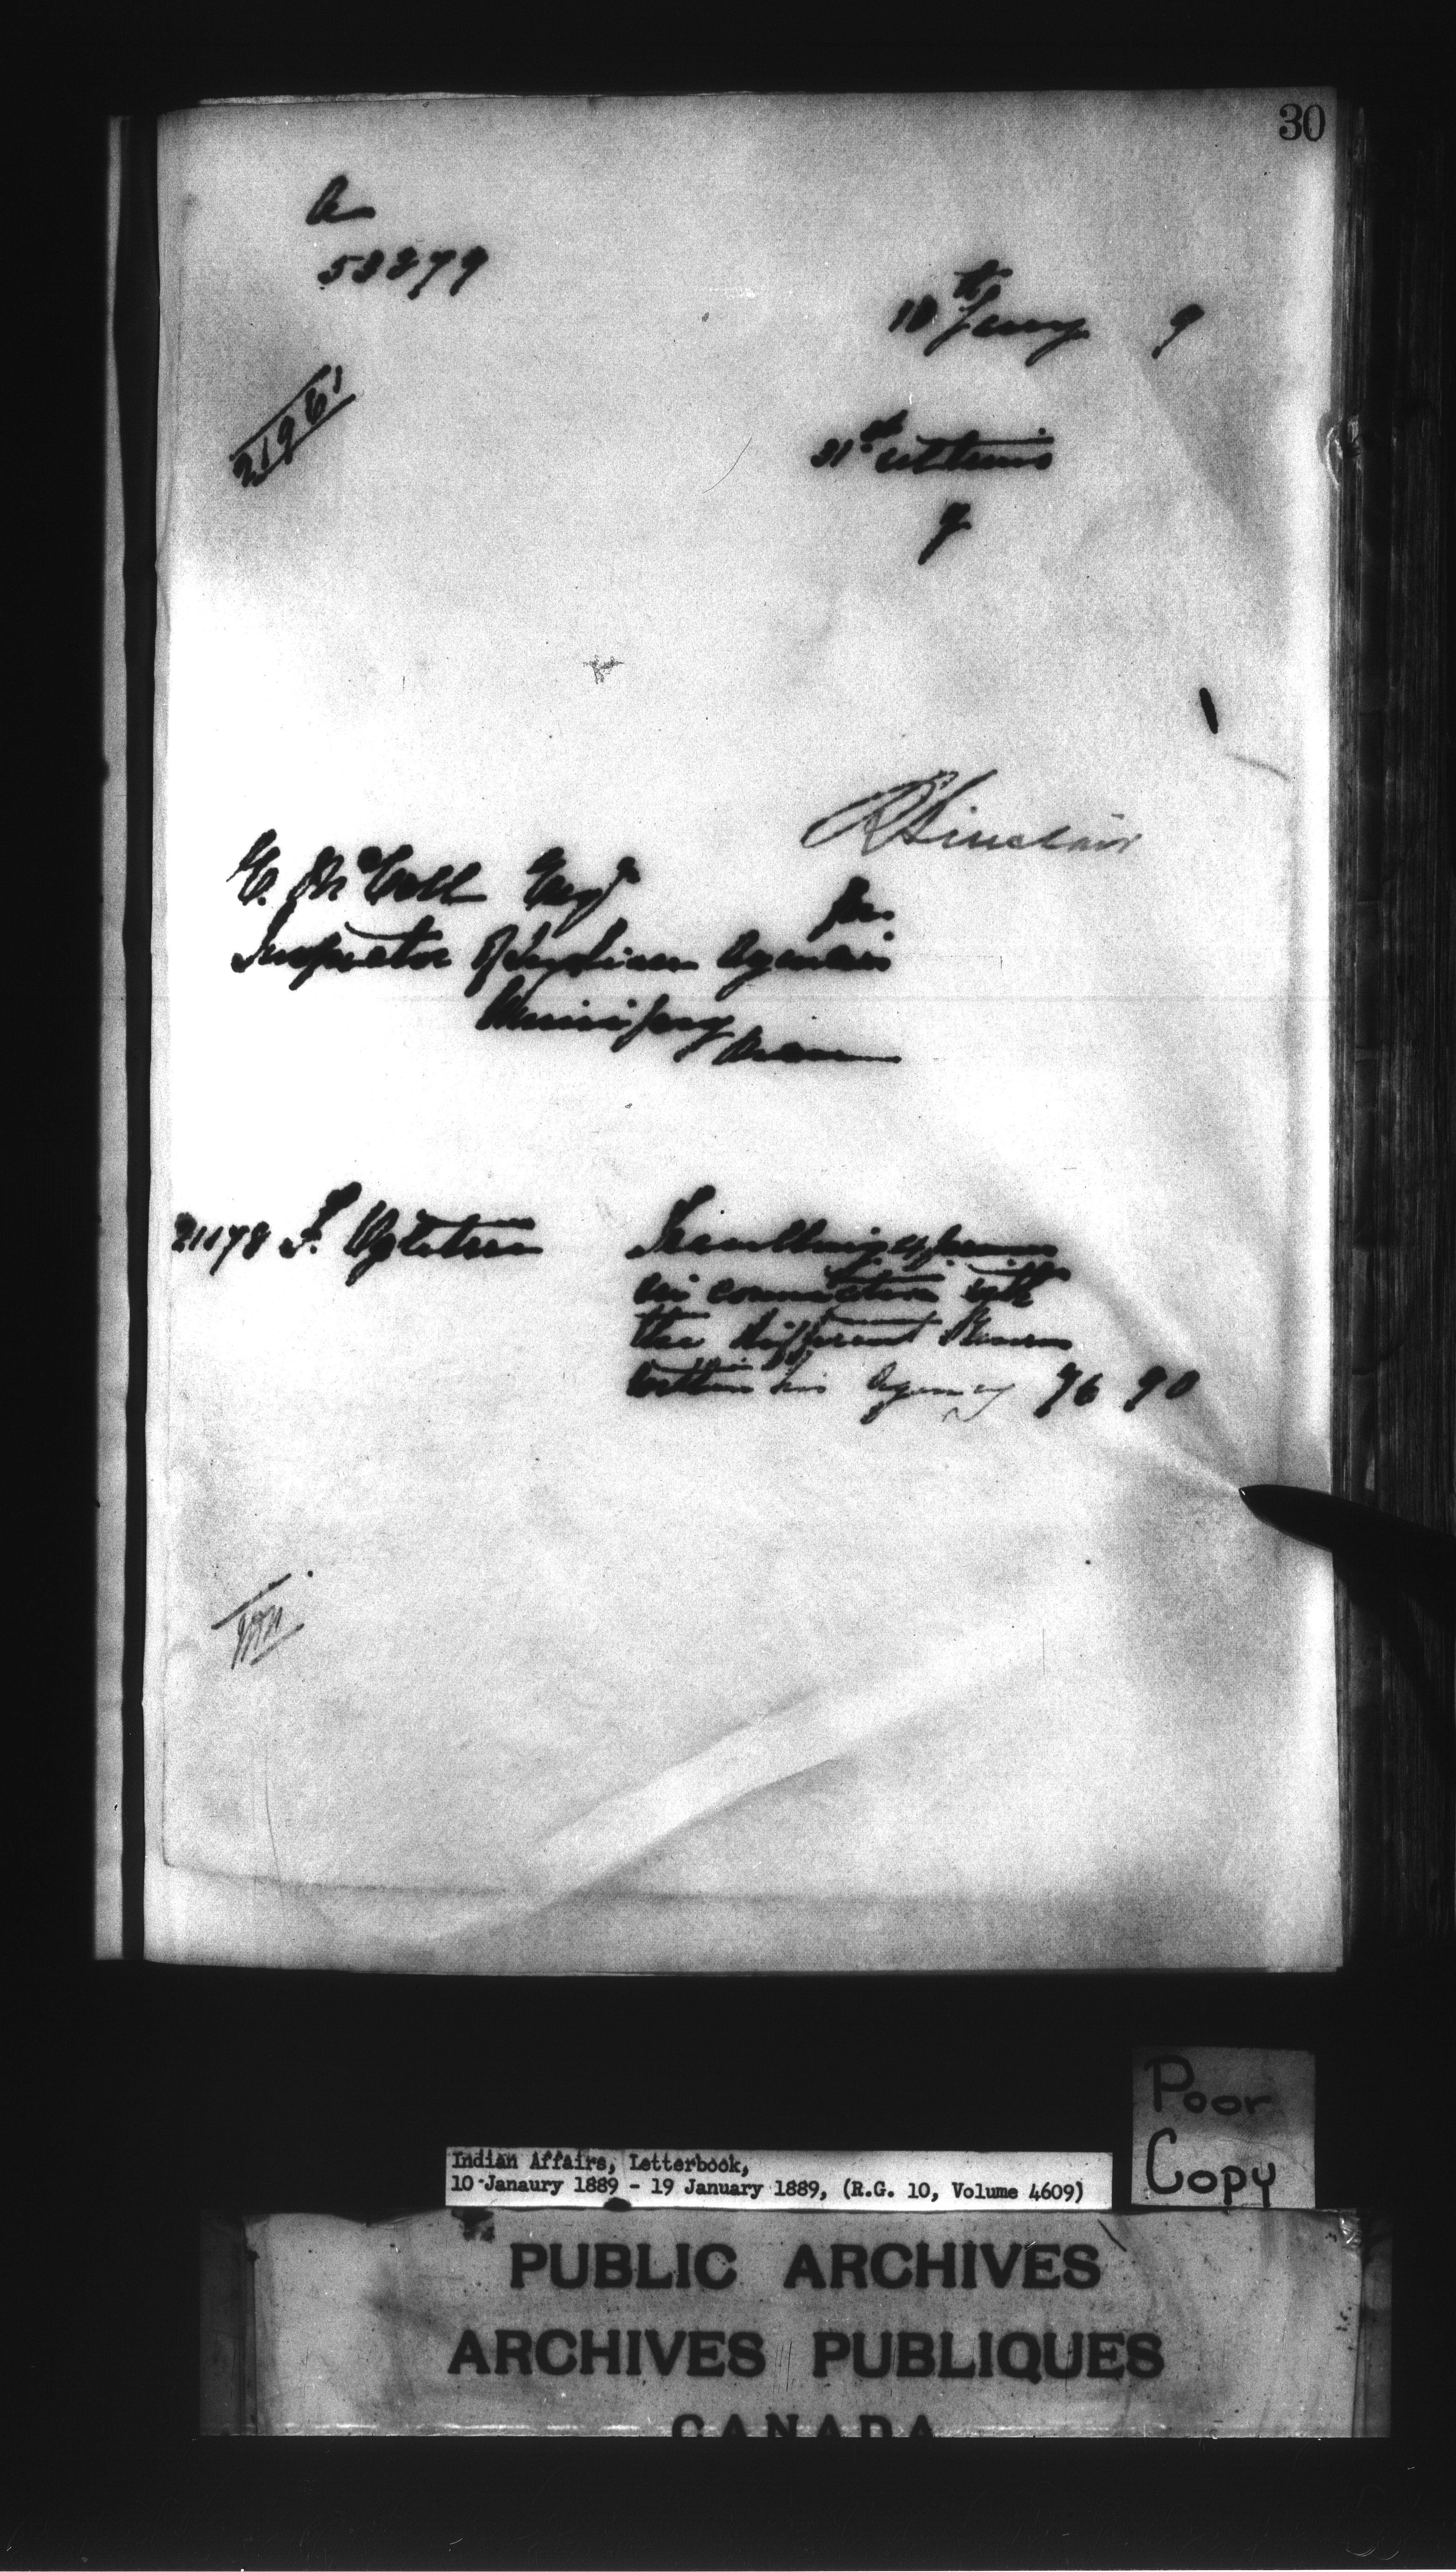 30
A
53379
10th Jany 9
21961
31st ultimo
9
R Sinclair
E. McColl Esqr
for
Inspector of Indian Agencies
Winnipeg
Man
21178 F. Ogletree Travelling expenses
in connection with
the different Reserves
within his Agency 76 90
Poor
Copy
Indian Affairs, Letterbook,
10 Janaury 1889 - 19 January 1889, (R.G. 10, Volume 4609)
PUBLIC ARCHIVES
ARCHIVES PUBLIQUES
CANADA